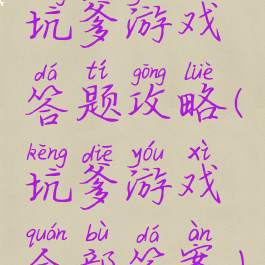 坑爹游戏
dá tí gōng lüè
答题攻略(
kēng diē yóu xì
坑爹游戏
quán bù dá àn
全部答案)